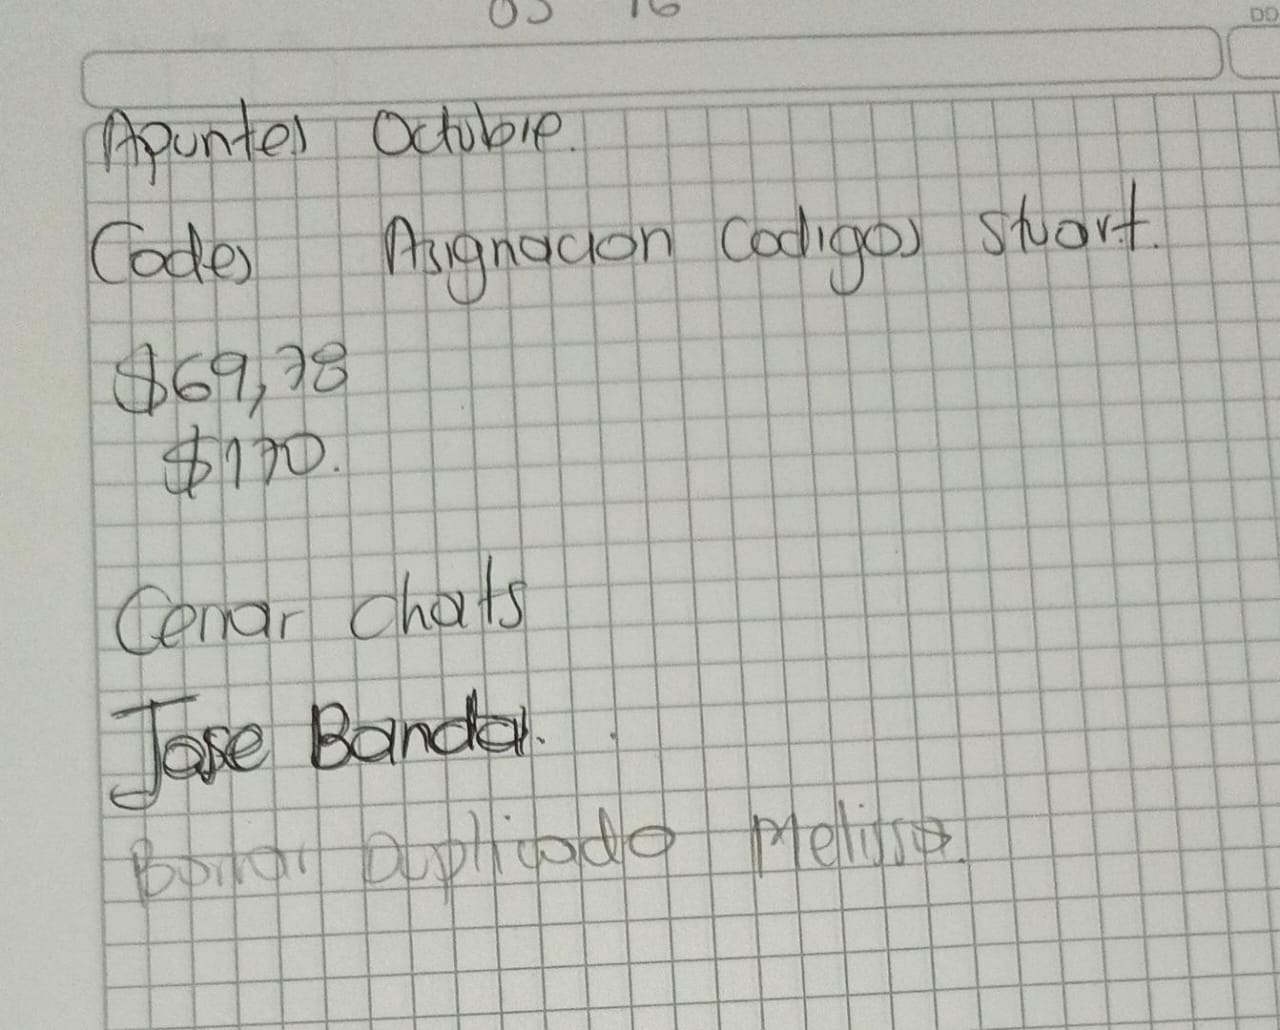 05 16
DD
Apuntes Octubre.
Codes Asignacion Codigos Stuart.
$69,78
$170.
Cerrar chats
Jose Banda.
Borrar duplicado Melissa.